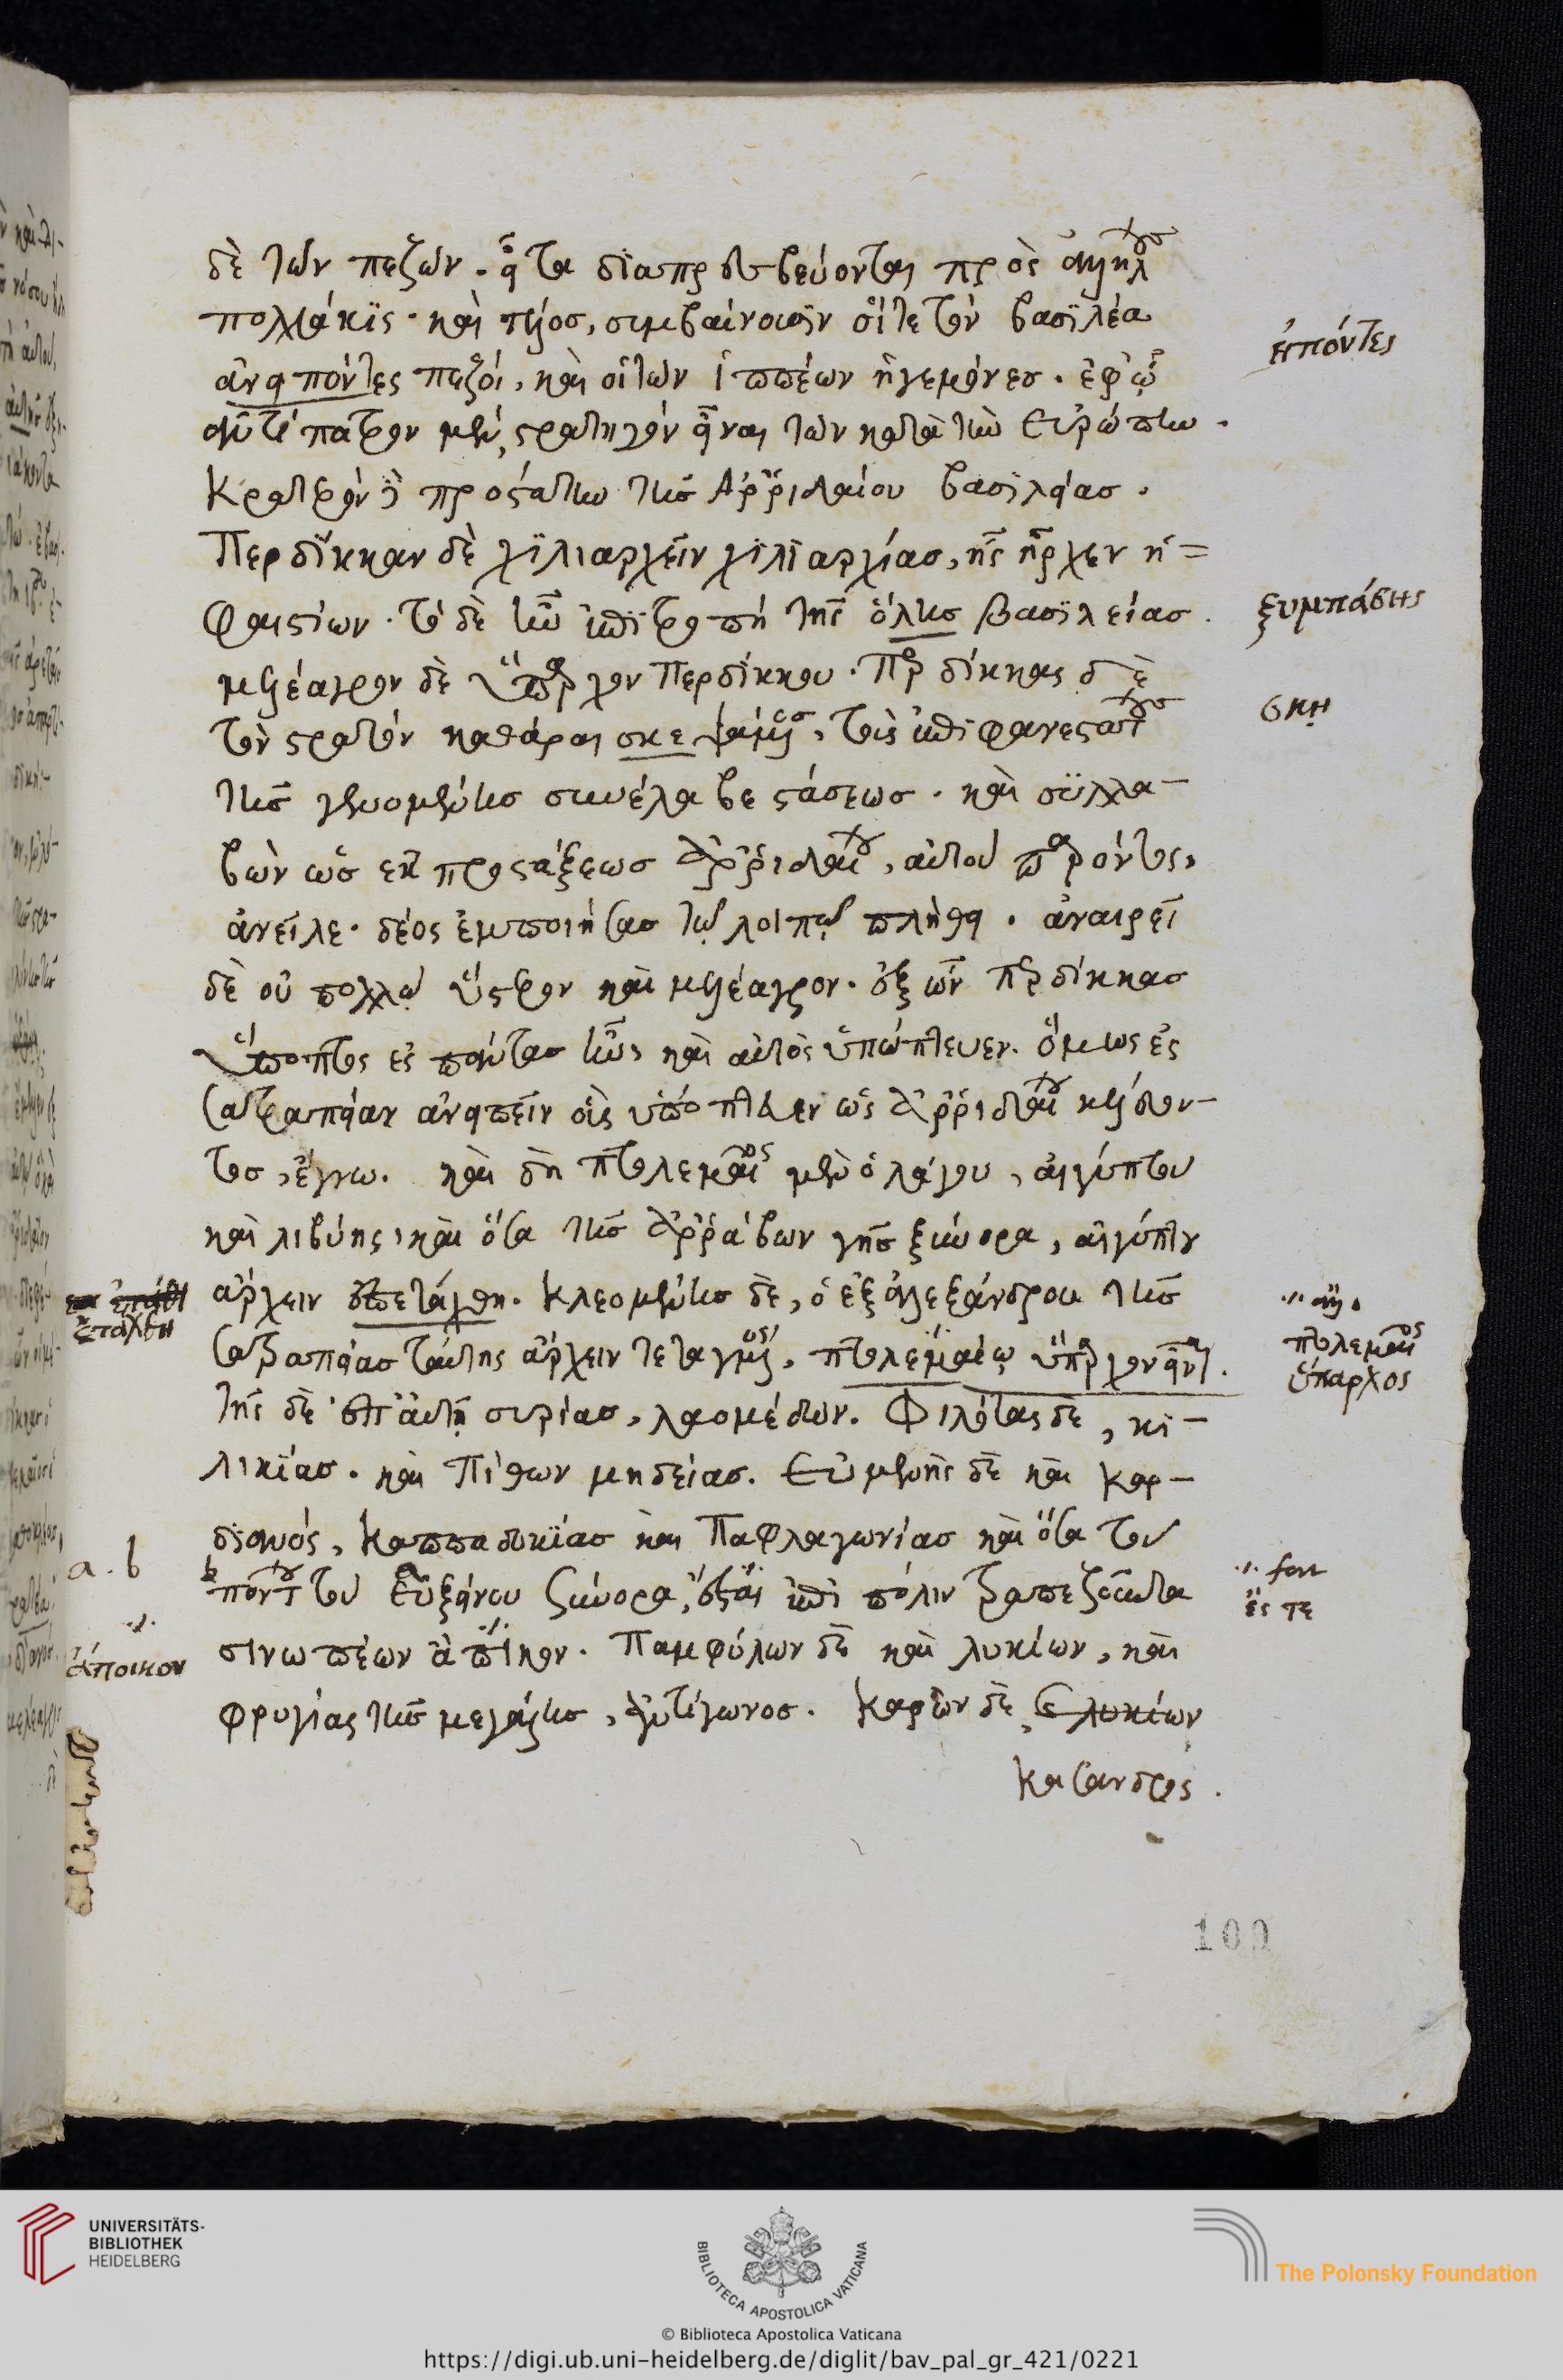 δὲ τῶν πεζῶν. εἶτα διαπρεσβεύονται πρὸς ἀλλήλους
πολλάκις· καὶ τέλος, συμβαίνουσιν οἵ τε τὸν βασιλέα
ἀνειπόντες πεζοί, καὶ οἱ τῶν ἱππέων ἡγεμόνες. ἐφ' ᾧ
ἀντίπατρον μὲν στρατηγὸν εἶναι τῶν κατὰ τὴν Εὐρώπην.
Κρατερὸν δὲ προστάτην τῆς Ἀρριδαίου βασιλείας.
Περδίκκαν δὲ χιλιαρχεῖν χιλιαρχίας, ἧς ἦρχεν ἡ=
φαιστίων. τὸ δὲ ἦν ἐπιτροπὴ τῆς ὅλης βασιλείας.
μελέαγρον δὲ ὕπαρχον Περδίκκου. Περδίκκας δὲ
τὸν στρατὸν καθᾶραι σκεψάμενος, τοὺς ἐπιφανεστάτους
τῆς γενομένης συνέλαβε στάσεως. καὶ συλλα-
βὼν ὡς ἐκ προστάξεως ἀρριδαίου, αὐτοῦ παρόντος,
ἀνεῖλε. δέος ἐμποιήσας τῷ λοιπῷ πλήθει. ἀναιρεῖ
δὲ οὐ πολλῷ ὕστερον καὶ μελέαγρον. ἐξ ὧν περδίκκας
ὕποπτος ἐς πάντας ἦν, καὶ αὐτὸς ὑπώπτευεν. ὅμως ἐς
σατραπείαν ἀνειπεῖν οἷς ὑπόπτευεν ὡς ἀρριδαίου κελεύον-
τος, ἔγνω. καὶ δὴ πτολεμαῖος μὲν ὁ λάγου, αἰγύπτου
καὶ λιβύης, καὶ ὅσα τῆς ἀρράβων γῆς ξύνορα, αἰγύπτου
ἄρχειν ἐπετάχθη. Κλεομένης δὲ, ὁ ἐξ ἀλεξάνδρου τῆς
σατραπείας ταύτης ἄρχειν τεταγμένος, πτολεμαίῳ ὕπαρχον εἶναι.
τῆς δὲ ἐπ' αὐτῇ συρίας, λαομέδων. Φιλώτας δὲ, κι-
λικίας. καὶ Πίθων μηδείας. Εὐμένης δὲ καὶ Καρ-
διανός, Καππαδοκίας καὶ Παφλαγωνίας καὶ ὅσα τοῦ
πόντου τοῦ Εὐξείνου ξύνορα, ἔστε ἐπὶ πόλιν τραπεζοῦντα
σινωπέων ἄποικον. Παμφύλων δὲ καὶ λυκίων, καὶ
φρυγίας τῆς μεγάλης, ἀντίγονος. Καρῶν δὲ
Κάσανδρος.
εἰπόντες
ξυμπάσης
σκη
ἐτάχθη
αι.
πτολεμαῖος
ὕπαρχος
a. b
fort
ἔς τε
ἄποικον
109
UNIVERSITÄTS-
BIBLIOTHEK
HEIDELBERG
BIBLIOTECA APOSTOLICA VATICANA
The Polonsky Foundation
© Biblioteca Apostolica Vaticana
https://digi.ub.uni-heidelberg.de/diglit/bav_pal_gr_421/0221